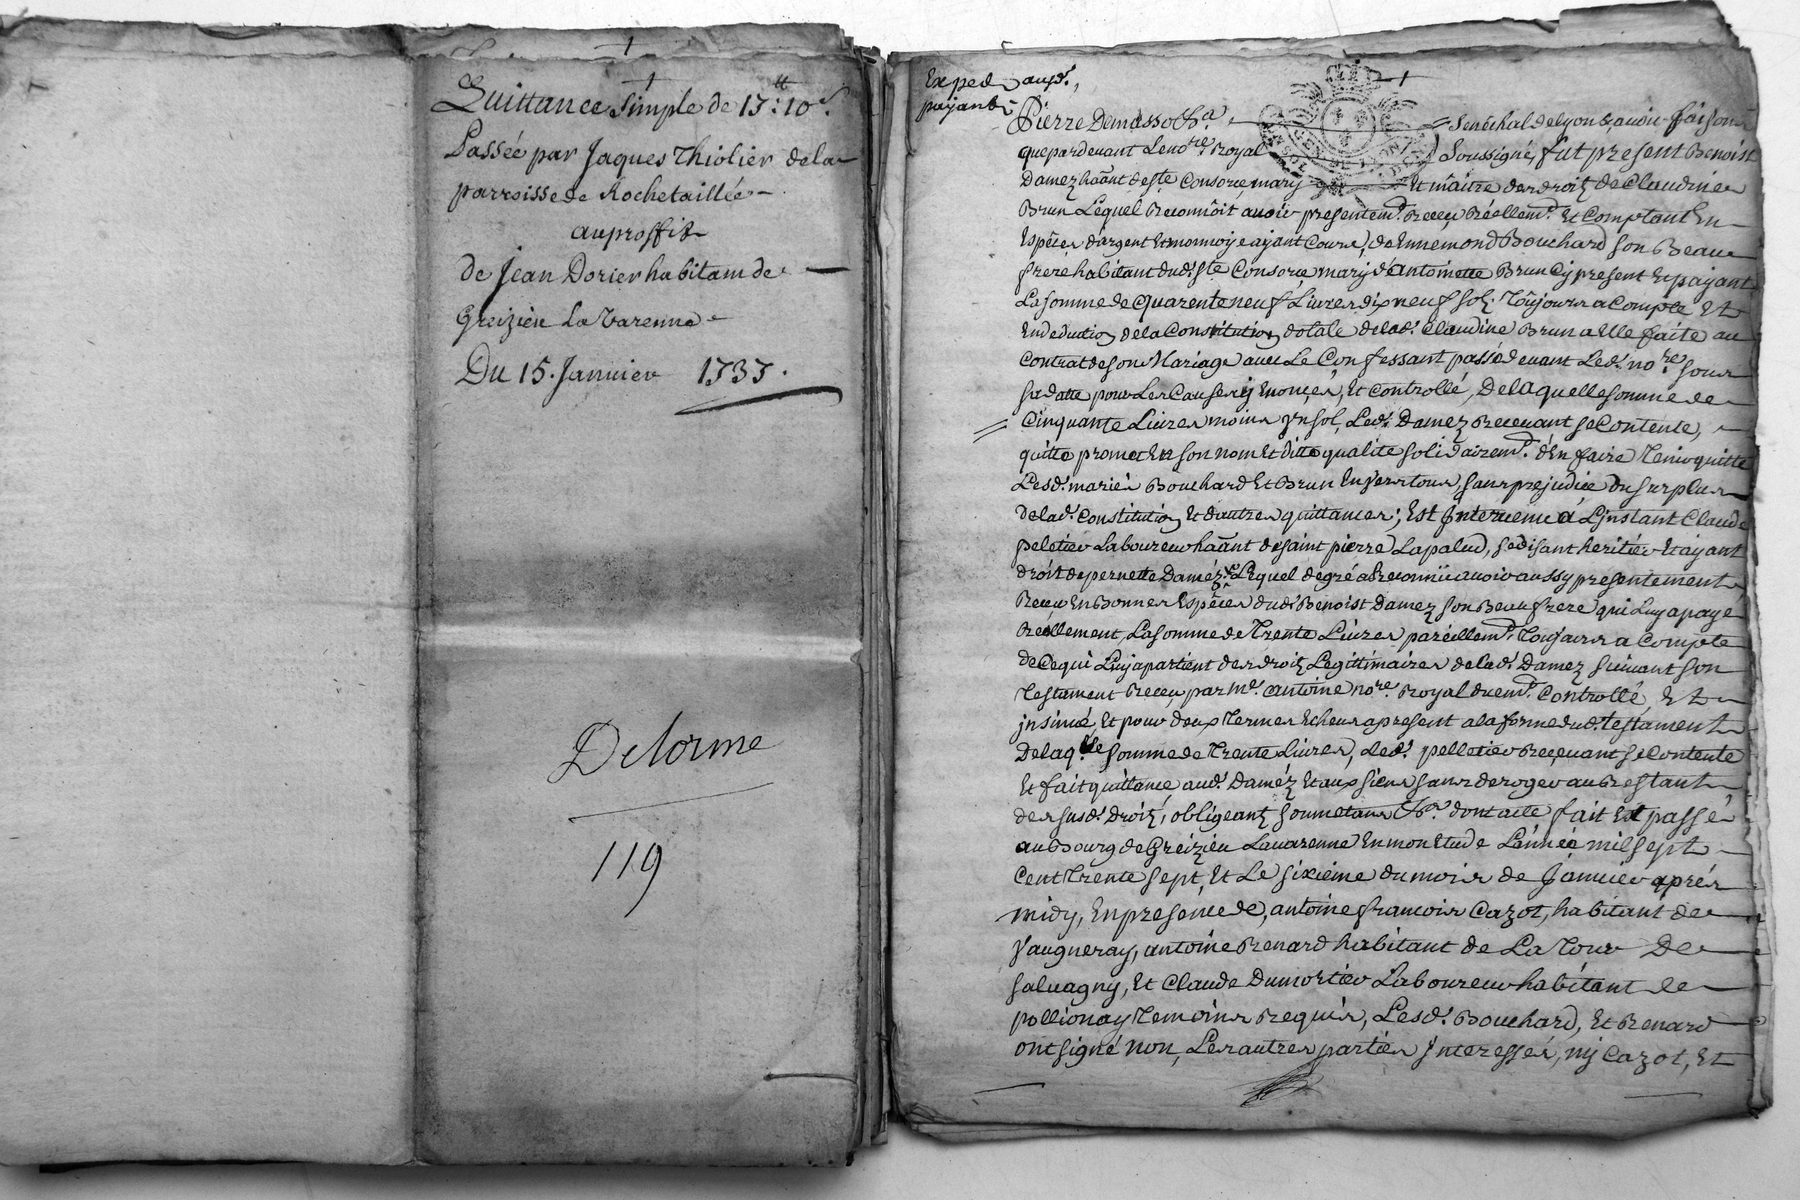 Quittance simple de 13ᵗᵗ: 10ˢ.
Passée par Jaques Thiolier dela
parroisse de Rochetaillée
auproffit
de Jean Dorier habitam de
Greizieu La Varenne
Du 15. Janvier 1737.
Delorme
119
Exped. audᵗ.
payant
Pierre Demasso &ᵃ Senéchal de Lyon &, audit faisons
que pardevant Le noʳᵉ Royal Soussigné, fut present Benoist
Damez haant de sᵗᵉ Consorce mary Et maitre des droitz de Claudine
Brun Lequel Reconnoit avoir presentemᵗ. Receu Réellemᵗ. Et Comptant En
Espéces d'argent Et monnoye ayant Cours, de Ennemond Bouchard son Beau
frere habitant dudᵗ sᵗᵉ Consorce mary d'antoinette Brun Cy present Et payant
La somme de quarente neuf Livres dix neuf solz. Toujours a Compte Et
En deduction de la Constitution dotale de lad. Claudine Brun a Elle faite au
Contrat de son Mariage avec Le Confessant passé devant Led. noʳᵉ sous
sa datte pour Les Causes y Enoncés, Et Controllé, De laquelle somme de
Cinquante Livres moins Vn sol, Led. Damez Recevant se Contente,
quitte promet En son nom Et ditte qualite solidairemᵗ. d'En faire Tenir quitte
Lesd. mariés Bouchard Et Brun Envers tous, sans prejudice du surplus
de lad. Constitution Et d'autres quittances; Est Intervenu á L'jnstant Claude
peletier Laboureur haant de saint pierre Lapalud, se disant heritier Et ayant
droit de pernette Daméz Lequel de gré a Reconnu avoir aussy presentement
Receu En Bonnes Espéces dudᵗ Benoist Damez son Beau frere qui Luy a paye
Réellement, La somme de Trente Livres paréillemᵗ. Toujours a Compte
de Ce qui Luy apartient des droitz Legittimaires de lad. Damez suivant son
Testament Receu par Mᵉ. antoine noʳᵉ. Royal duemᵗ. Controllé, Et
jnsinué, Et pour deux Termes Echeus a present a la forme dud. testament
De laq.ˡˡᵉ somme de Trente Livres, Led. pelletier Recevant se Contente
Et fait quittance, aud. Daméz Et aux siens sans deroger au Restant
des susd. Droitz, obligeant soumetans &ᵃ. dont acte fait Et passé
au Bourg de Greizieu Lavarenne En mon Etude L'année mil sept
Cent Trente sept, Et Le sixieme du mois de Janvier aprés
midy, En presence de, antoine francois Cazot, habitant de
Vaugneray, antoine Renard habitant de La Tour De
salvagny, Et Claude Dumortier Laboureur habitant de
pollionay Temoins Requis, Lesd. Bouchard, Et Renard
ont signé non, Les autres parties Interessés, nÿ Cazot, Et